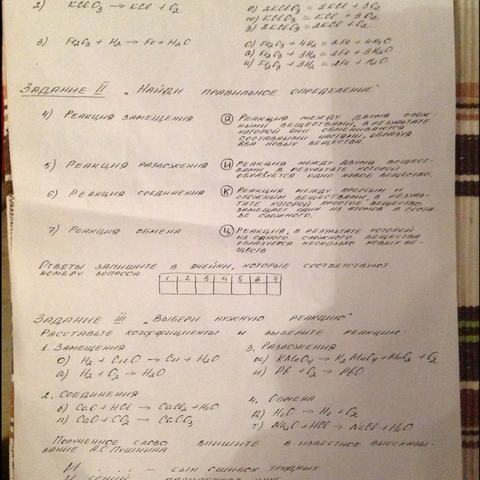 2) KClO3 → KCl + O2
е) 2KClO3 = 2KCl + 3O2
ж) KClO3 = KCl + 3O2
з) 2KClO3 = 2KCl + O2
3) Fe2O3 + H2 → Fe + H2O
о) Fe2O3 + 4H2 = 2Fe + 4H2O
а) Fe2O3 + 3H2 = 2Fe + 3H2O
и) Fe2O3 + 3H2 = 2Fe + H2O
ЗАДАНИЕ II „НАЙДИ ПРАВИЛЬНОЕ ОПРЕДЕЛЕНИЕ"
4) РЕАКЦИЯ ЗАМЕЩЕНИЯ
Я РЕАКЦИЯ МЕЖДУ ДВУМЯ СЛОЖ-
НЫМИ ВЕЩЕСТВАМИ, В РЕЗУЛЬТАТЕ
КОТОРОЙ ОНИ ОБМЕНИВАЮТСЯ
СОСТАВНЫМИ ЧАСТЯМИ, ОБРАЗУЯ
ДВА НОВЫХ ВЕЩЕСТВА.
5) РЕАКЦИЯ РАЗЛОЖЕНИЯ
И РЕАКЦИЯ МЕЖДУ ДВУМЯ ВЕЩЕСТ-
ВАМИ, В РЕЗУЛЬТАТЕ КОТОРОЙ
ОБРАЗУЕТСЯ ОДНО НОВОЕ ВЕЩЕСТВО.
6) РЕАКЦИЯ СОЕДИНЕНИЯ
К РЕАКЦИЯ МЕЖДУ ПРОСТЫМ И
СЛОЖНЫМ ВЕЩЕСТВАМИ, В РЕЗУЛЬ-
ТАТЕ КОТОРОЙ ПРОСТОЕ ВЕЩЕСТВО
ЗАМЕЩАЕТ ОДИН ИЗ АТОМОВ В СОСТА-
ВЕ СЛОЖНОГО.
7) РЕАКЦИЯ ОБМЕНА
Ц РЕАКЦИЯ, В РЕЗУЛЬТАТЕ КОТОРОЙ
ИЗ ОДНОГО СЛОЖНОГО ВЕЩЕСТВА
ОБРАЗУЕТСЯ НЕСКОЛЬКО НОВЫХ ВЕ-
ЩЕСТВ
ОТВЕТЫ ЗАПИШИТЕ В ЯЧЕЙКИ, КОТОРЫЕ СООТВЕТСТВУЮТ
НОМЕРУ ВОПРОСА
1 2 3 4 5 6 7
ЗАДАНИЕ III „ВЫБЕРИ НУЖНУЮ РЕАКЦИЮ"
РАССТАВЬТЕ КОЭФФИЦИЕНТЫ И ВЫБЕРИТЕ РЕАКЦИЮ:
1. ЗАМЕЩЕНИЯ
о) H2 + CuO → Cu + H2O
а) H2 + O2 → H2O
3. РАЗЛОЖЕНИЯ
ж) KMnO4 → K2MnO4 + MnO2 + O2
н) Pb + O2 → PbO
2. СОЕДИНЕНИЯ
б) CaO + HCl → CaCl2 + H2O
п) CaO + CO2 → CaCO3
4. ОБМЕНА
д) H2O → H2 + O2
т) Na2O + HCl → NaCl + H2O
ПОЛУЧЕННОЕ СЛОВО ВПИШИТЕ В ИЗВЕСТНОЕ ВЫСКАЗЫ-
ВАНИЕ А.С. ПУШКИНА
И . . . . — СЫН ОШИБОК ТРУДНЫХ
И ГЕНИЙ